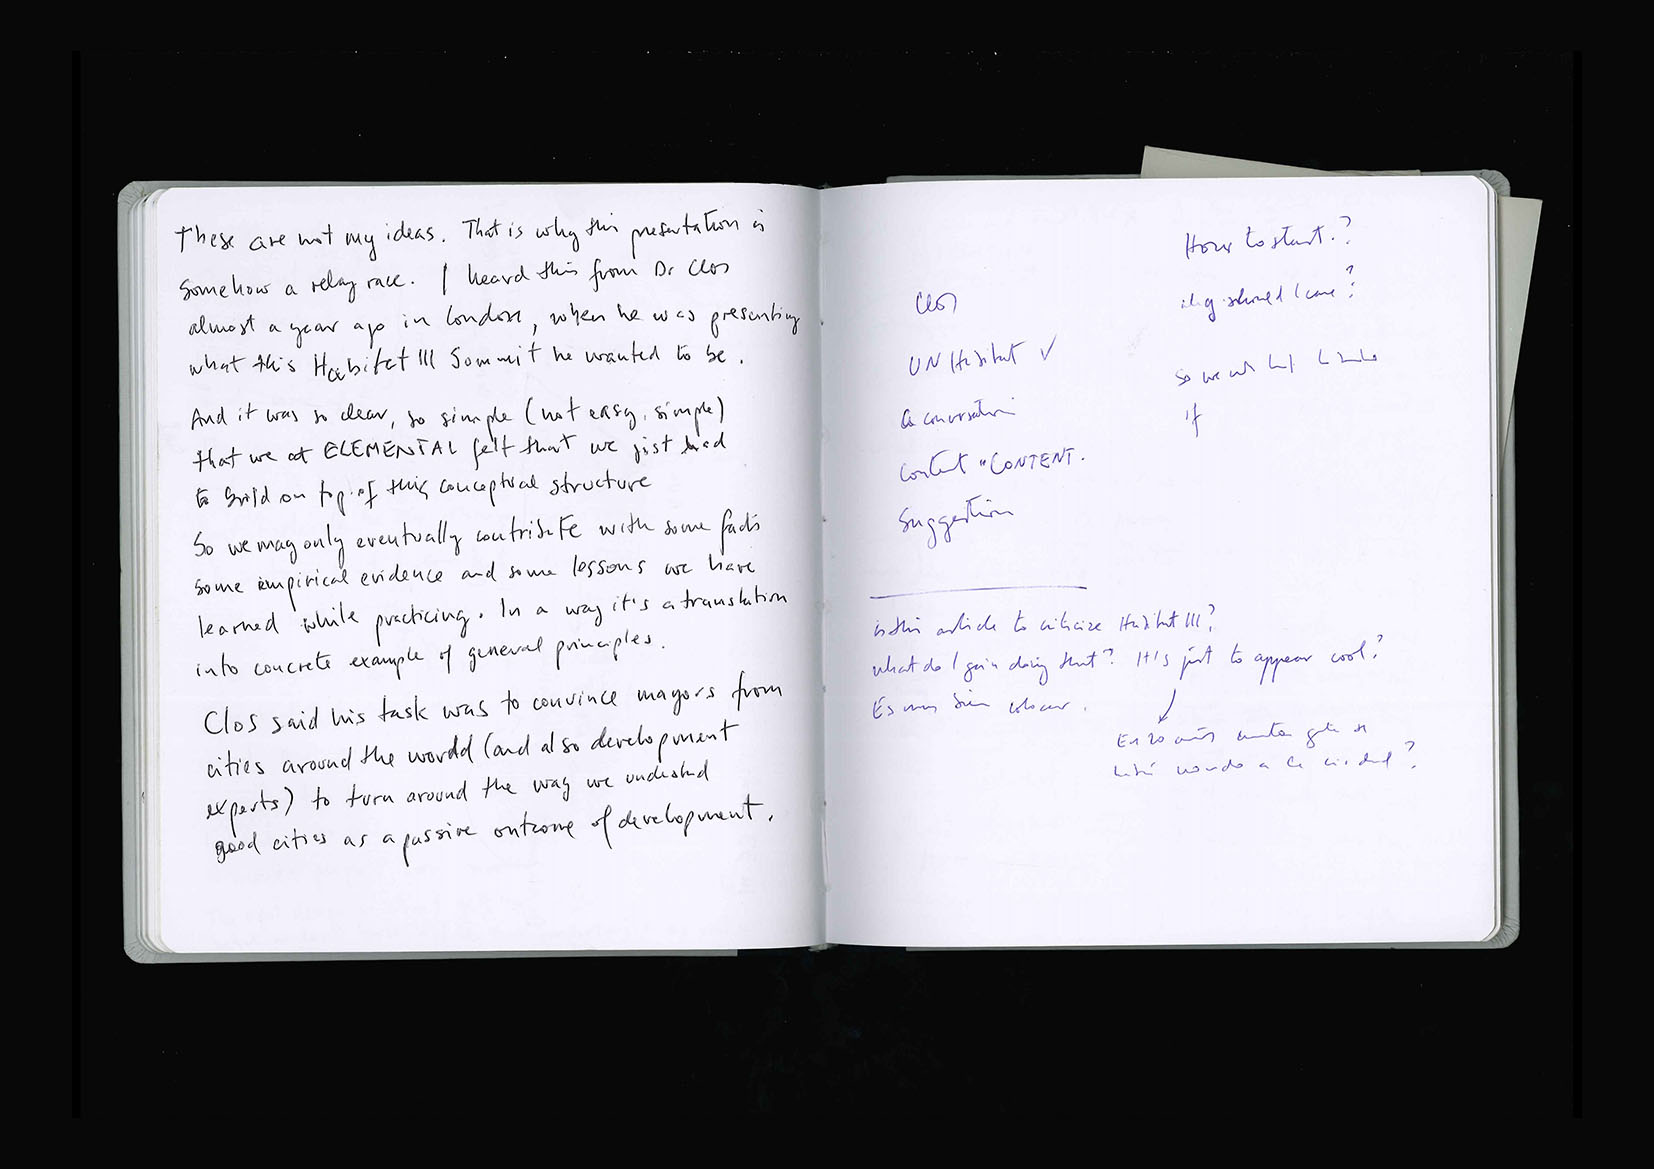 These are not my ideas. That is why this presentation is
somehow a relay race. I heard this from Dr Clos
almost a year ago in London, when he was presenting
what this Habitat III Sommit he wanted to be.
And it was so clear, so simple (not easy, simple)
that we at ELEMENTAL felt that we just had
to build on top of this conceptual structure
So we may only eventually contribute with some facts
some empirical evidence and some lessons we have
learned while practicing. In a way it's a translation
into concrete example of general principles.
Clos said his task was to convince mayors from
cities around the world (and also development
experts) to turn around the way we understand
good cities as a passive outcome of development.
How to start.?
why should I care?
So we
if
Clos
UN Habitat ✓
Content "CONTENT.
Suggestion
is this article to criticize Habitat III?
what do I gain doing that? It's just to appear cool?
Es mas bien
En 20 años
a la ciudad?